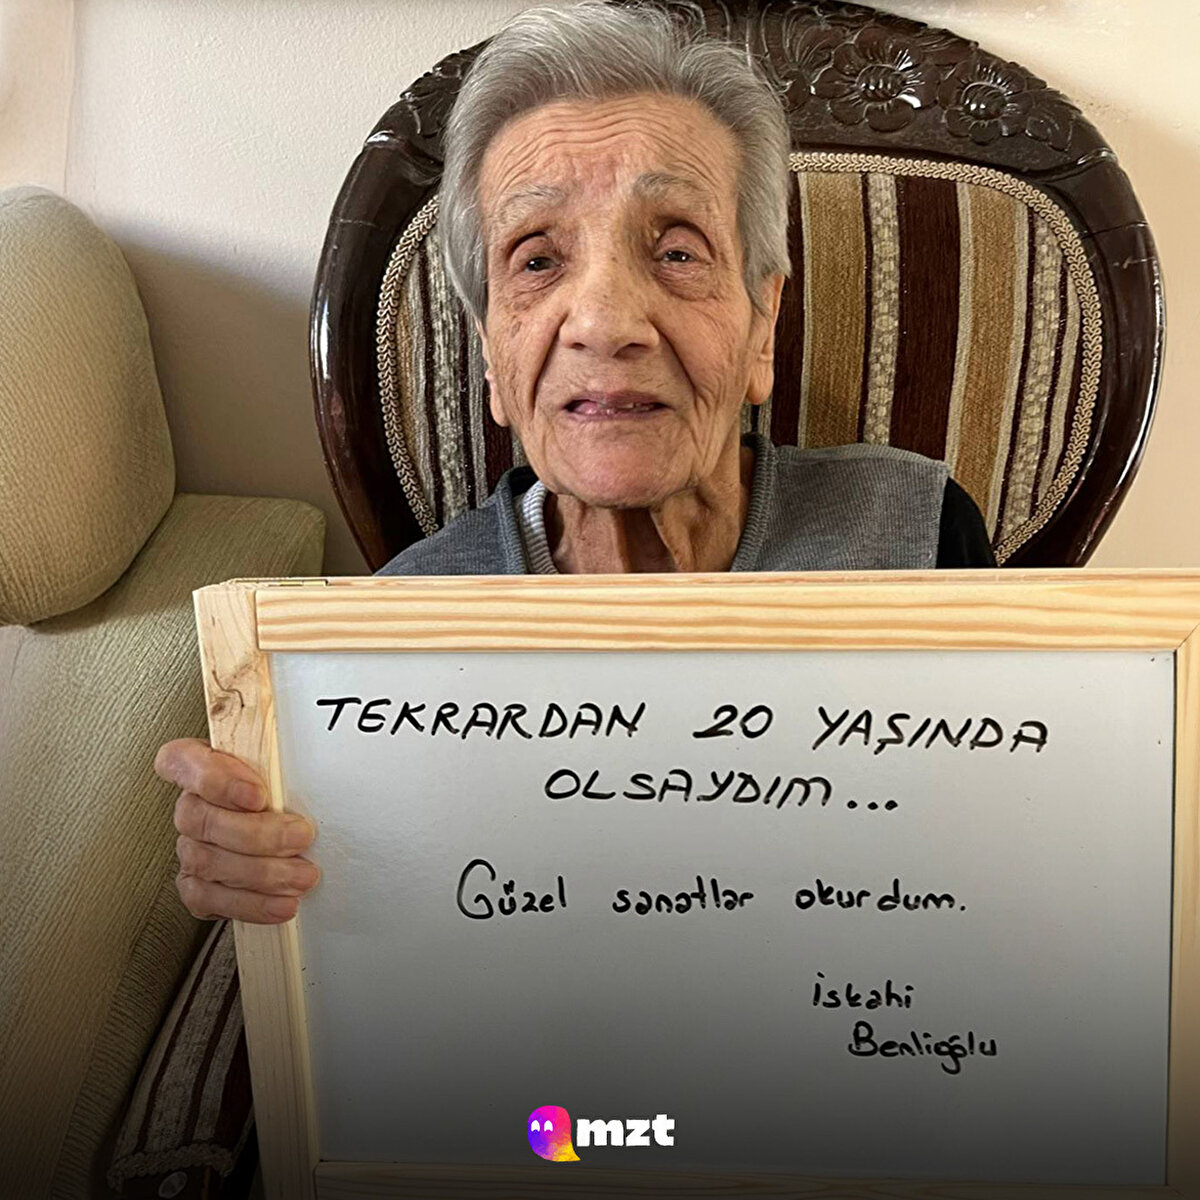 TEKRARDAN 20 YAŞINDA
OLSAYDIM...
Güzel sanatlar okurdum.
İskahi
Benlioğlu
mzt